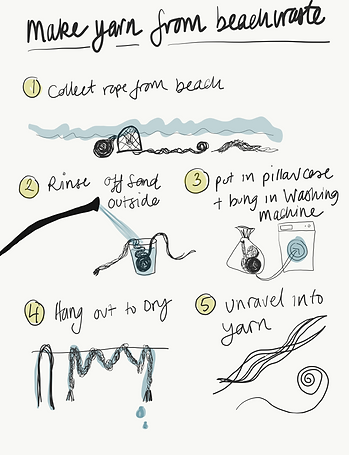 Make yarn from beachwaste
1 Collect rope from beach
2 Rinse off sand
outside
3 put in pillowcase
+ bung in Washing
machine
4 Hang out to Dry
5 unravel into
yarn